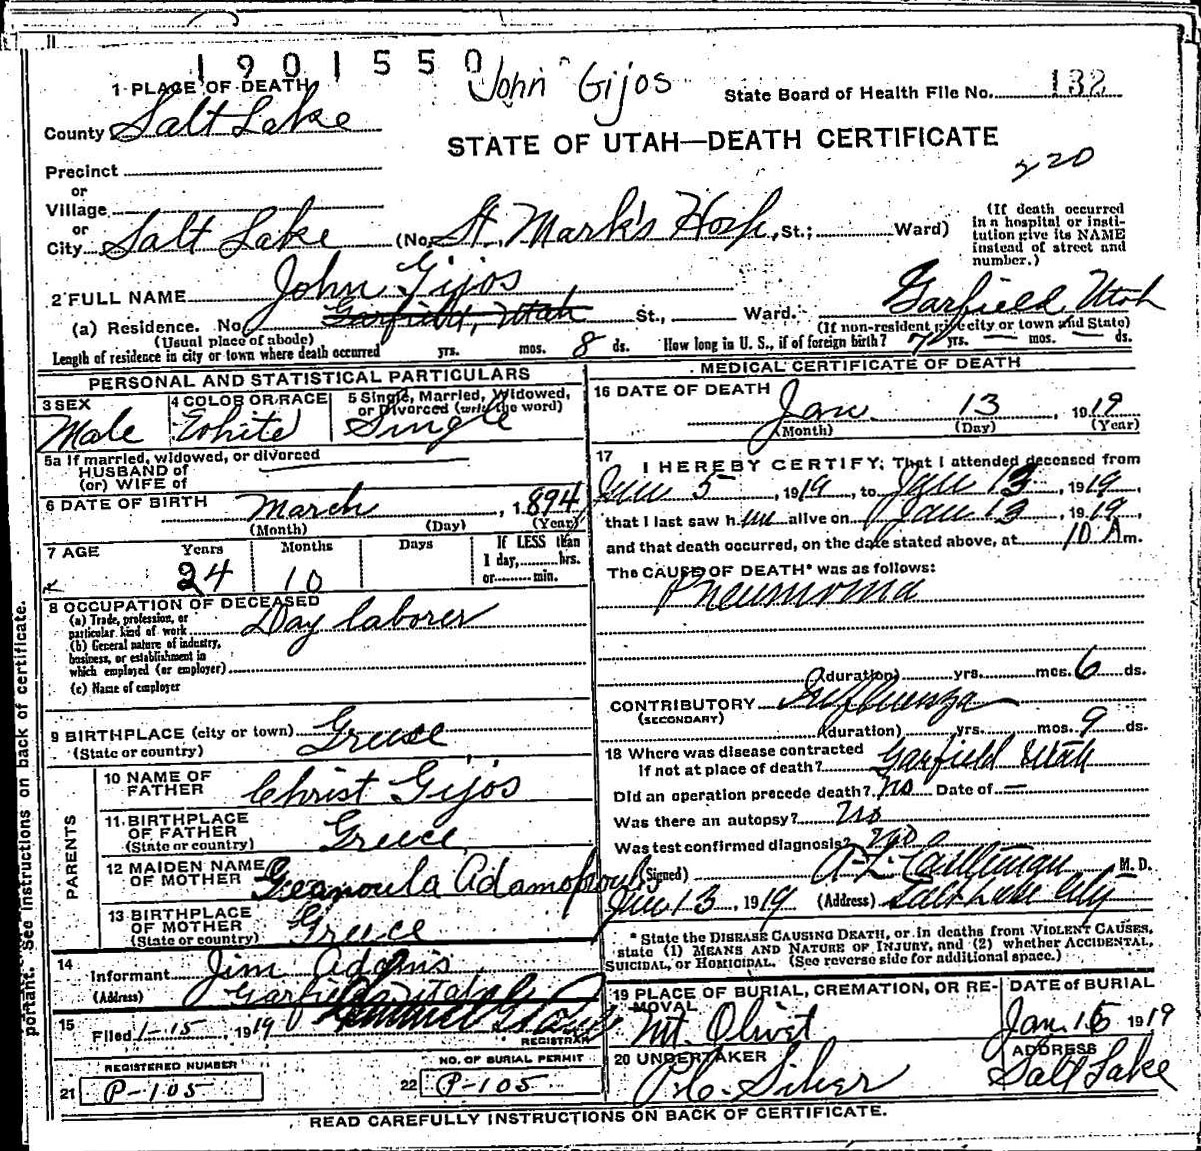 1901550
John Gijos
State Board of Health File No. 132
1 PLACE OF DEATH
County Salt Lake
STATE OF UTAH—DEATH CERTIFICATE
220
Precinct
or
Village
or
City Salt Lake (No. St. Mark's Hosp, St.; Ward)
(If death occurred in a hospital or institution give its NAME instead of street and number.)
2 FULL NAME John Gijos
(a) Residence. No. Garfield, Utah St., Ward. Garfield, Utah
(Usual place of abode) (If non-resident give city or town and State)
Length of residence in city or town where death occurred yrs. mos. 8 ds. How long in U. S., if of foreign birth? 7 yrs. — mos. — ds.
PERSONAL AND STATISTICAL PARTICULARS
3 SEX Male
4 COLOR OR RACE White
5 Single, Married, Widowed, or Divorced (write the word) Single
5a If married, widowed, or divorced
HUSBAND of
(or) WIFE of
6 DATE OF BIRTH March , 1894
(Month) (Day) (Year)
7 AGE Years Months Days If LESS than
24 10 1 day,......hrs.
or......min.
8 OCCUPATION OF DECEASED
(a) Trade, profession, or
particular kind of work Day laborer
(b) General nature of industry,
business, or establishment in
which employed (or employer)
(c) Name of employer
9 BIRTHPLACE (city or town) Greese
(State or country)
PARENTS
10 NAME OF FATHER Christ Gijos
11 BIRTHPLACE OF FATHER Greece
(State or country)
12 MAIDEN NAME OF MOTHER Geanoula Adamopouls
13 BIRTHPLACE OF MOTHER Greece
(State or country)
14 Informant Jim Adams
(Address) Garfield Utah
15 Filed 1-15, 1919
REGISTRAR
REGISTERED NUMBER
21 P-105
NO. OF BURIAL PERMIT
22 P-105
MEDICAL CERTIFICATE OF DEATH
16 DATE OF DEATH Jan 13, 1919
(Month) (Day) (Year)
17 I HEREBY CERTIFY, That I attended deceased from
Jan 5, 1919, to Jan 13, 1919,
that I last saw him alive on Jan 13, 1919,
and that death occurred, on the date stated above, at 10 A m.
The CAUSE OF DEATH* was as follows:
Pneumonia
(duration) yrs. mos. 6 ds.
CONTRIBUTORY Influenza
(SECONDARY)
(duration) yrs. mos. 9 ds.
18 Where was disease contracted
if not at place of death? Garfield Utah
Did an operation precede death? No Date of —
Was there an autopsy? No
Was test confirmed diagnosis? No
(Signed) A. L. M. D.
Jan 13, 1919 (Address) Salt Lake City
* State the DISEASE CAUSING DEATH, or in deaths from VIOLENT CAUSES,
state (1) MEANS AND NATURE OF INJURY, and (2) whether ACCIDENTAL,
SUICIDAL, or HOMICIDAL. (See reverse side for additional space.)
19 PLACE OF BURIAL, CREMATION, OR REMOVAL Mt. Olivet
DATE OF BURIAL Jan. 16 1919
20 UNDERTAKER Silver
ADDRESS Salt Lake
READ CAREFULLY INSTRUCTIONS ON BACK OF CERTIFICATE.
portant. See instructions on back of certificate.